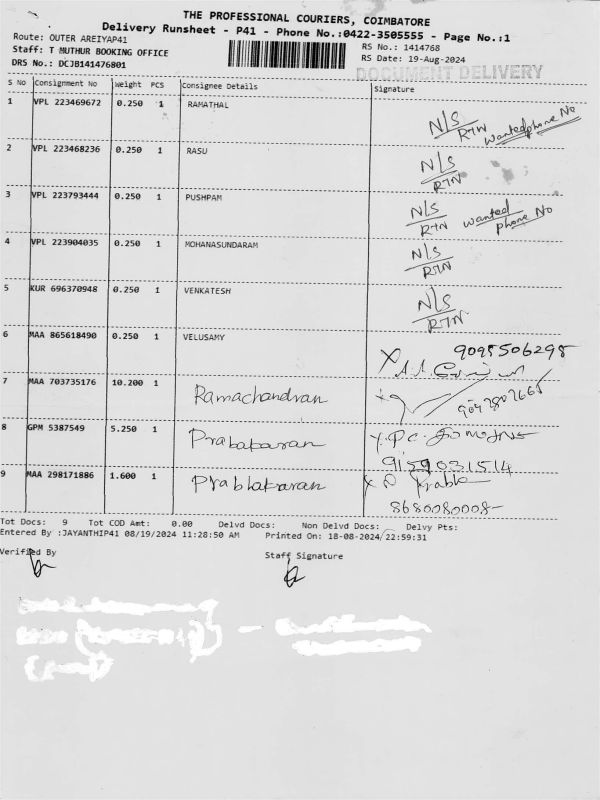 THE PROFESSIONAL COURIERS, COIMBATORE
Delivery Runsheet - P41 - Phone No.:0422-3505555 - Page No.:1
Route: OUTER AREIYAP41
RS No.: 1414768
Staff: T MUTHUR BOOKING OFFICE
RS Date: 19-Aug-2024
DRS No.: DCJB141476801
DOCUMENT DELIVERY
S No Consignment No Weight PCS Consignee Details Signature
1 VPL 223469672 0.250 1 RAMATHAL N/S RTN Wanted phone No
2 VPL 223468236 0.250 1 RASU N/S RTN
3 VPL 223793444 0.250 1 PUSHPAM N/S RTN wanted phone No
4 VPL 223904035 0.250 1 MOHANASUNDARAM N/S RTN
5 KUR 696370948 0.250 1 VENKATESH N/S RTN
6 MAA 865618490 0.250 1 VELUSAMY 9095506298
7 MAA 703735176 10.200 1 Ramachandran
8 GPM 5387549 5.250 1 Prabakaran 9159031514
9 MAA 298171886 1.600 1 Prabhakaran 8680080008
Tot Docs: 9 Tot COD Amt: 0.00 Delvd Docs: Non Delvd Docs: Delvy Pts:
Entered By :JAYANTHIP41 08/19/2024 11:28:50 AM Printed On: 18-08-2024 22:59:31
Verified By
Staff Signature